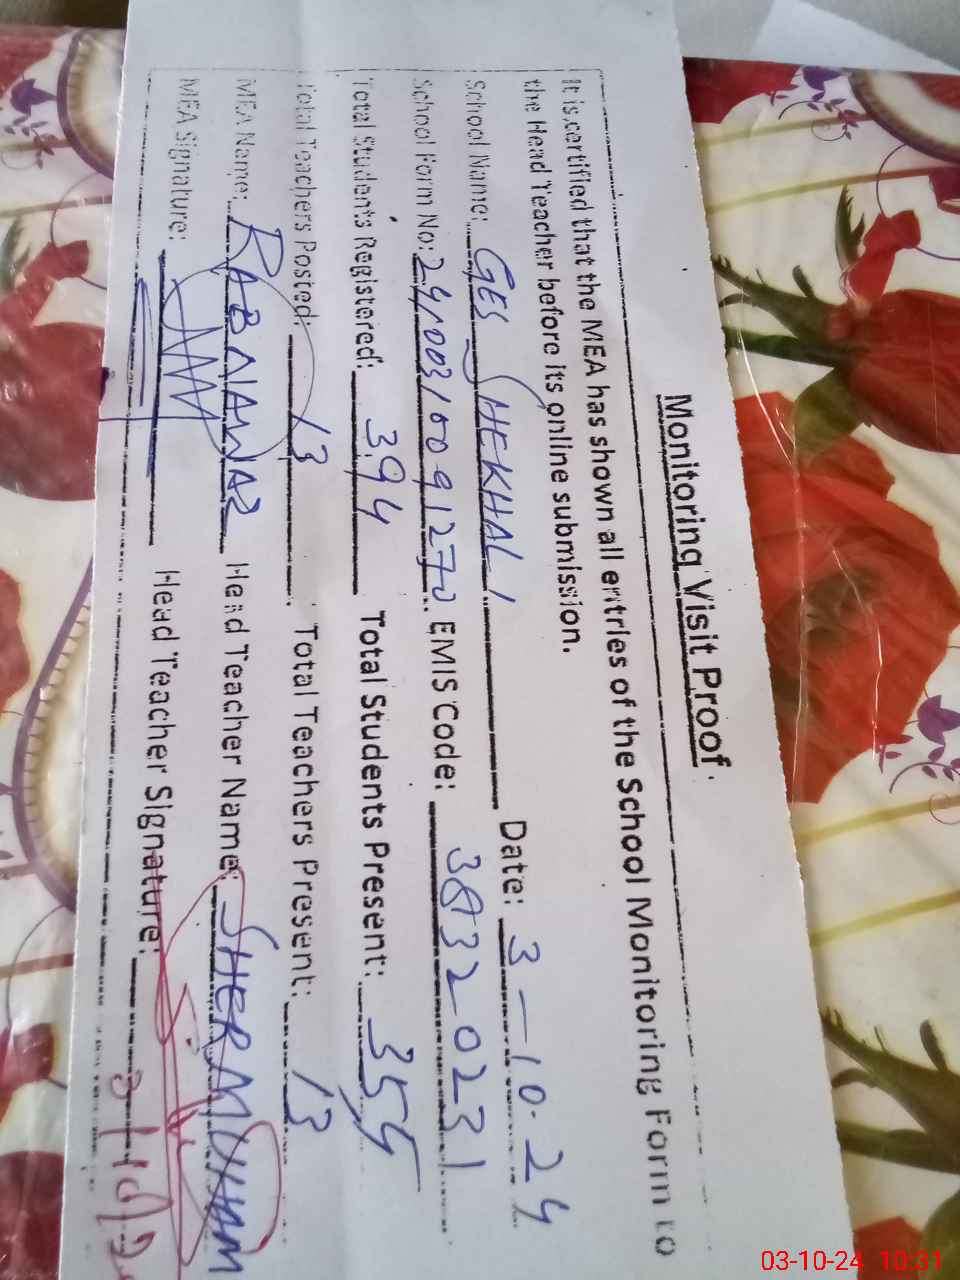 Monitoring Visit Proof
It is certified that the MEA has shown all entries of the School Monitoring Form to
the Head Teacher before its online submission.
School Name: GES SHEKHAL 1 Date: 3-10-24
School Form No: EMIS Code: 38320231
Total Students Registered: 394 Total Students Present: 355
Total Teachers Posted: 13 Total Teachers Present: 13
MEA Name: RAB NAWAZ Head Teacher Name: SHER MUHAM
MEA Signature: Head Teacher Signature:
03-10-24 10:31